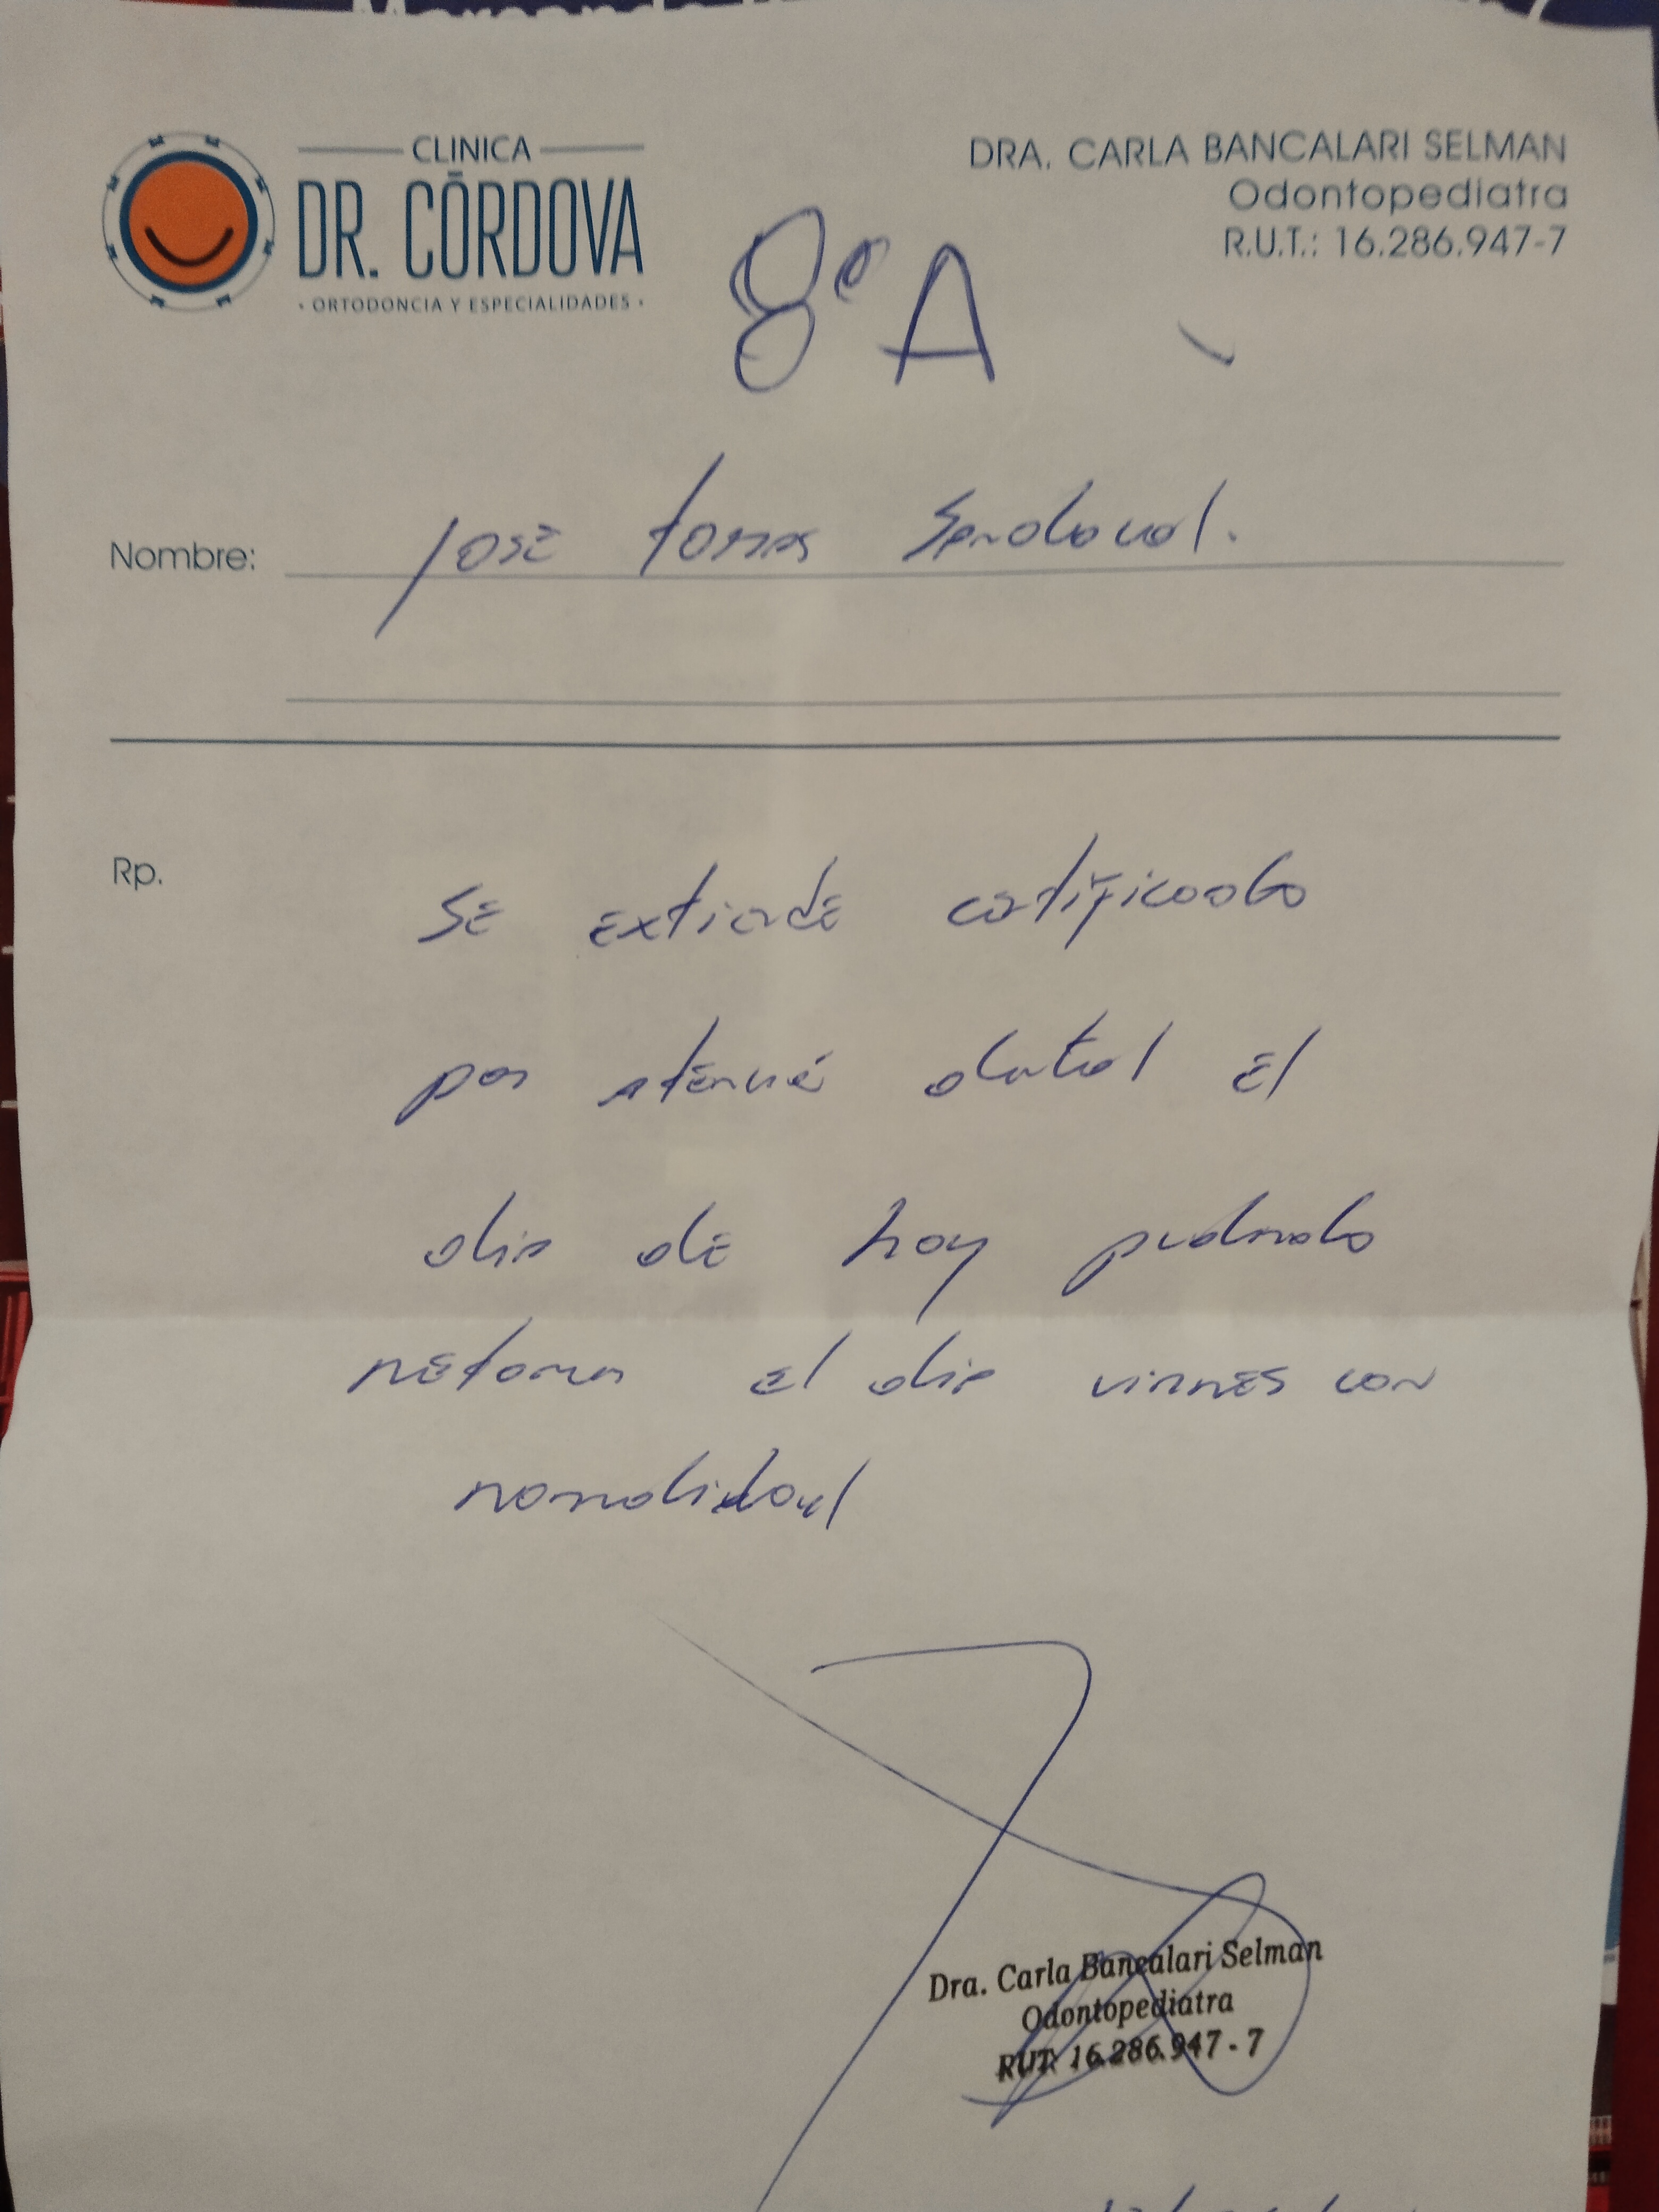 CLINICA
DR. CÓRDOVA
• ORTODONCIA Y ESPECIALIDADES •
DRA. CARLA BANCALARI SELMAN
Odontopediatra
R.U.T.: 16.286.947-7
8º A
Nombre: José Tomas Sandoval.
Rp.
Se extiende certificado
por atención dental el
dia de hoy pudiendo
retomar el dia viernes con
normalidad
Dra. Carla Bancalari Selman
Odontopediatra
RUT: 16.286.947-7